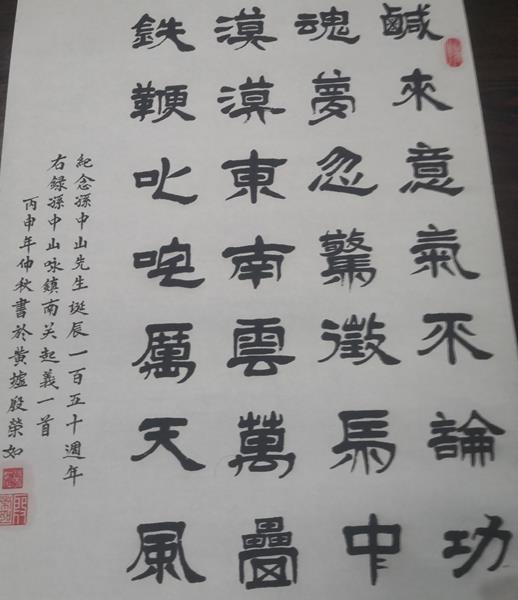 鹹來意氣不論功
魂夢忽驚徵馬中
漠漠東南雲萬疊
鉄鞭叱咤厲天風
紀念孫中山先生誕辰一百五十週年
右録孫中山咏鎮南关起義一首
丙申年仲秋書於黄墟殷榮如